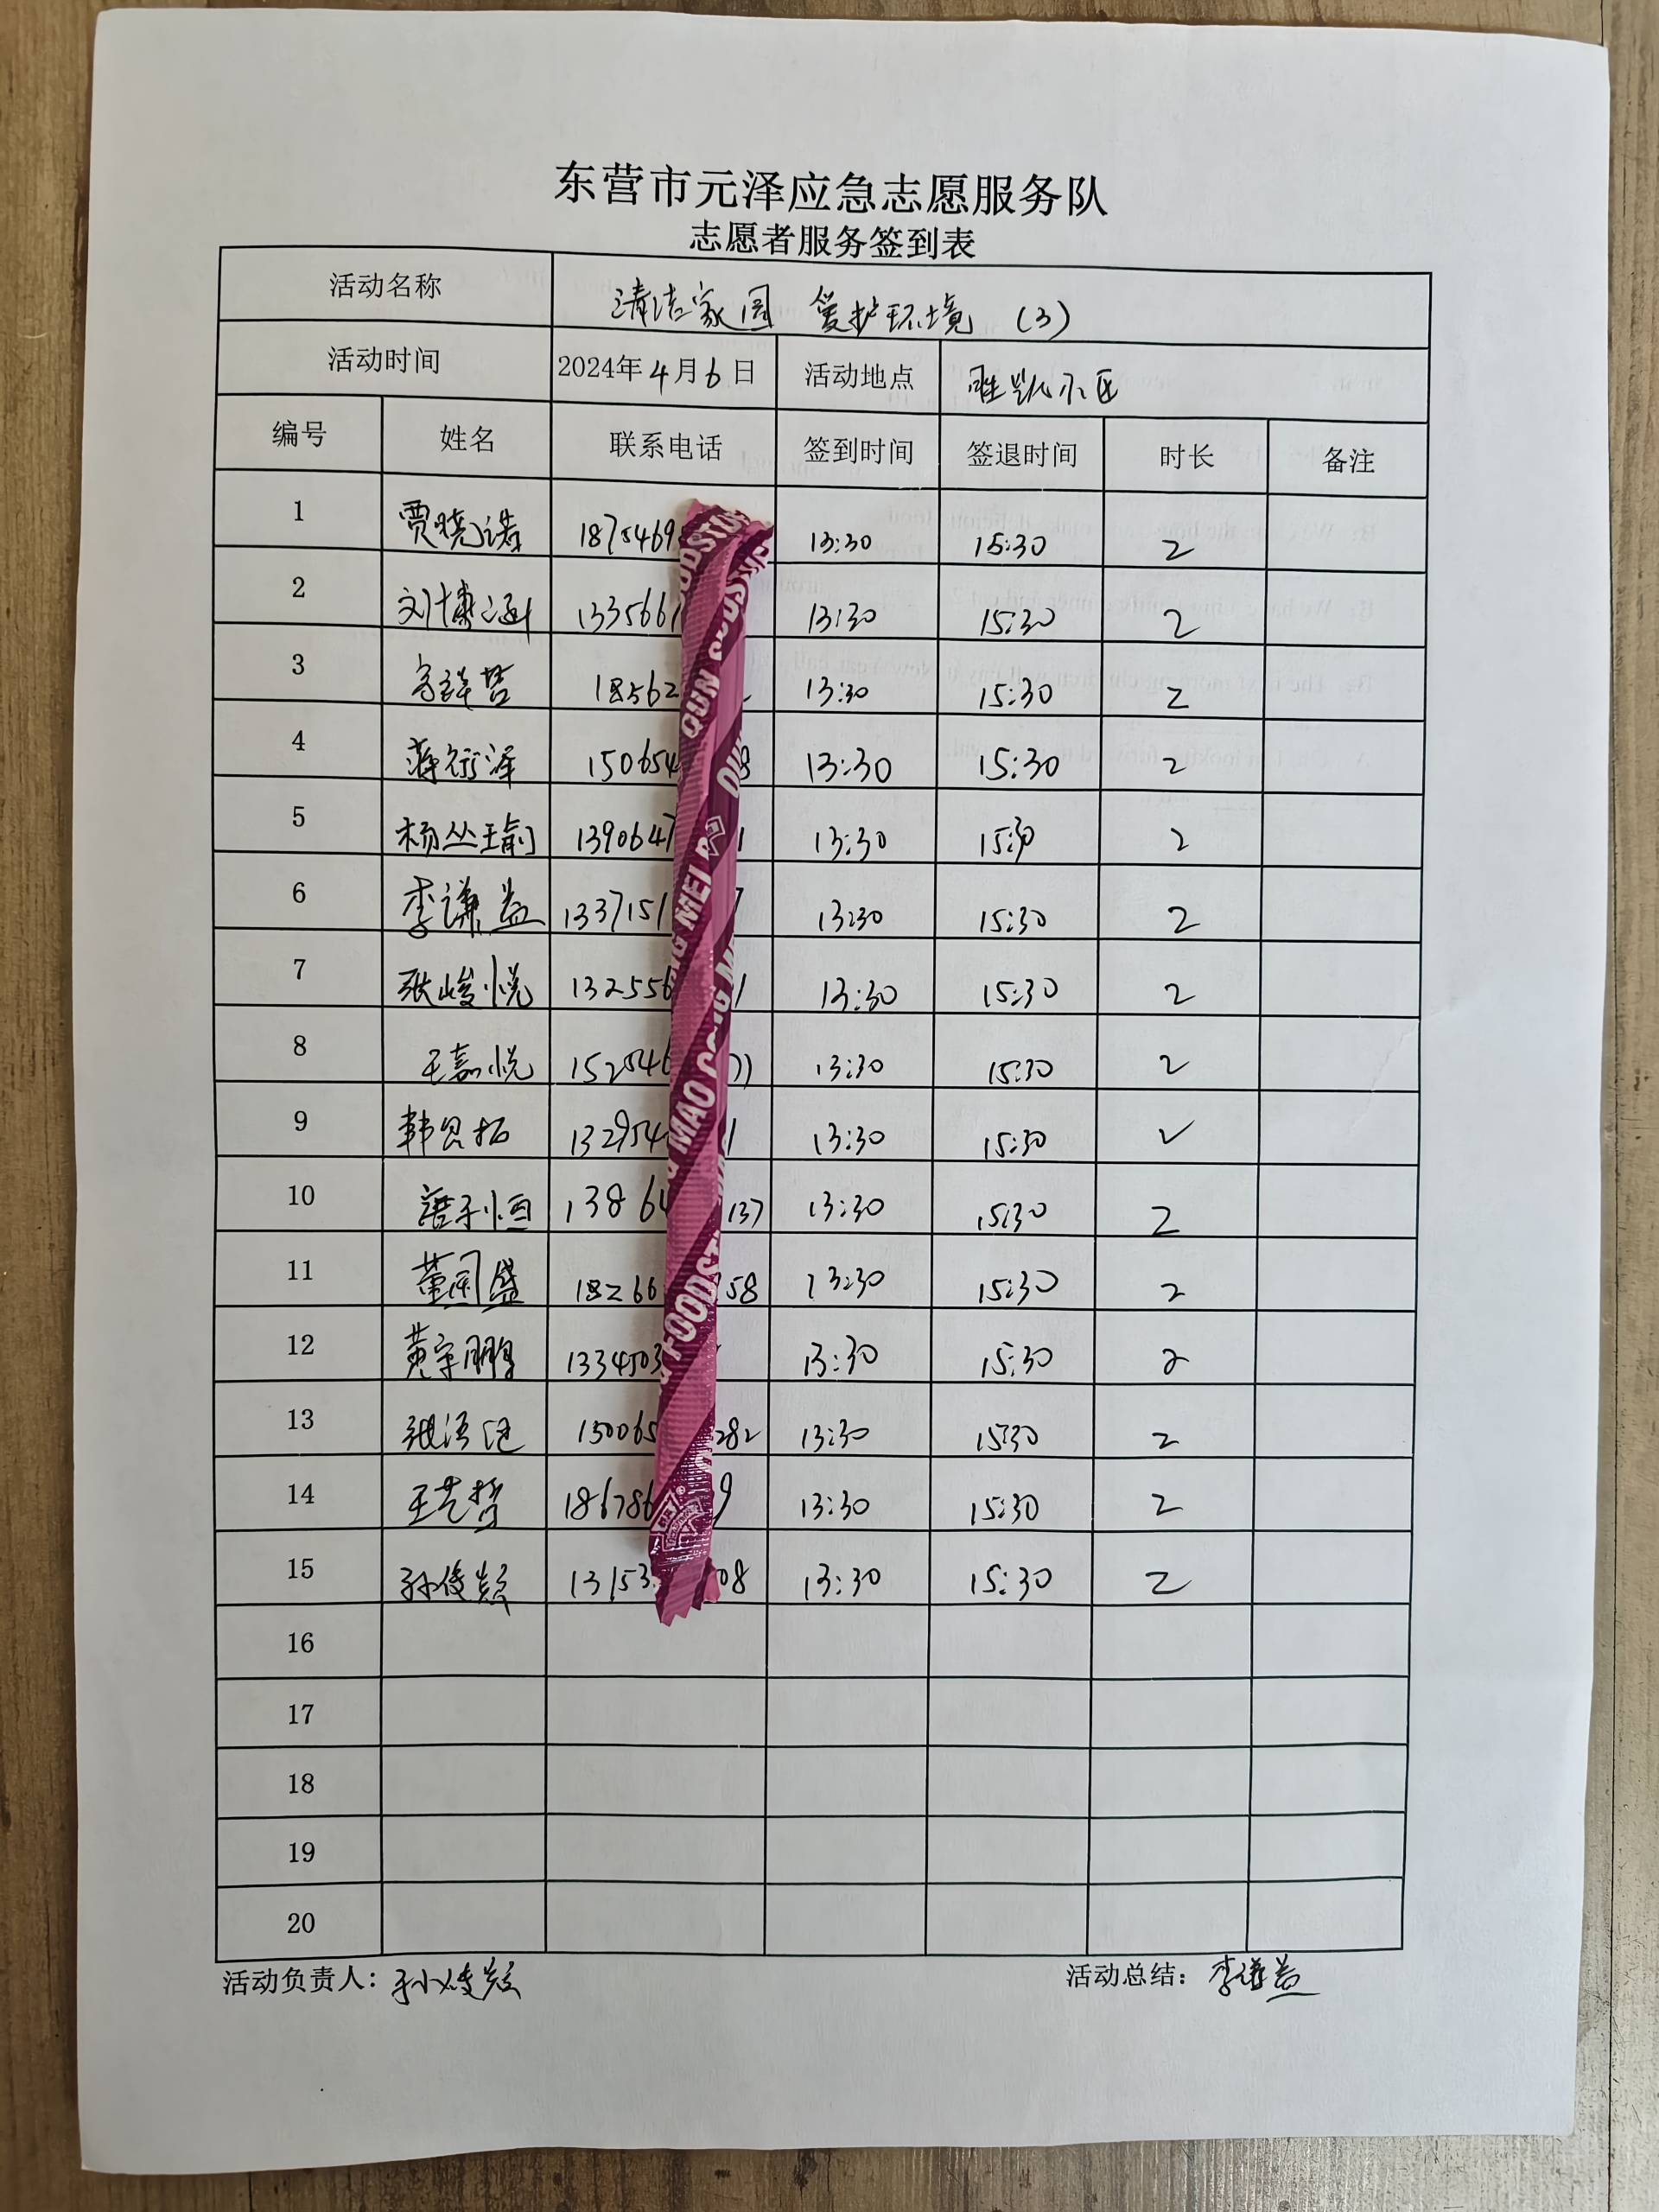 东营市元泽应急志愿服务队
志愿者服务签到表
活动名称 清洁家园 爱护环境 (3)
活动时间 2024年4月6日 活动地点 胜凯小区
编号 姓名 联系电话 签到时间 签退时间 时长 备注
1 贾晓诺 1875469 13:30 15:30 2
2 刘博涵 133566 13:30 15:30 2
3 18562 13:30 15:30 2
4 蒋衍泽 150654 8 13:30 15:30 2
5 杨丛瑜 1390647 1 13:30 15:30 2
6 李谦益 1337151 7 13:30 15:30 2
7 张峻悦 132556 1 13:30 15:30 2
8 王嘉悦 152546 13:30 15:30 2
9 韩昆拓 132954 1 13:30 15:30 2
10 138 64 137 13:30 15:30 2
11 董国盛 18266 58 13:30 15:30 2
12 黄宇鹏 1334503 13:30 15:30 2
13 150065 282 13:30 15:30 2
14 王艺哲 186786 9 13:30 15:30 2
15 孙俊 13153 08 13:30 15:30 2
16
17
18
19
20
活动负责人: 孙俊 活动总结: 李谦益
QUN FOODSTUFF
MAO CONG MEI
FOODST